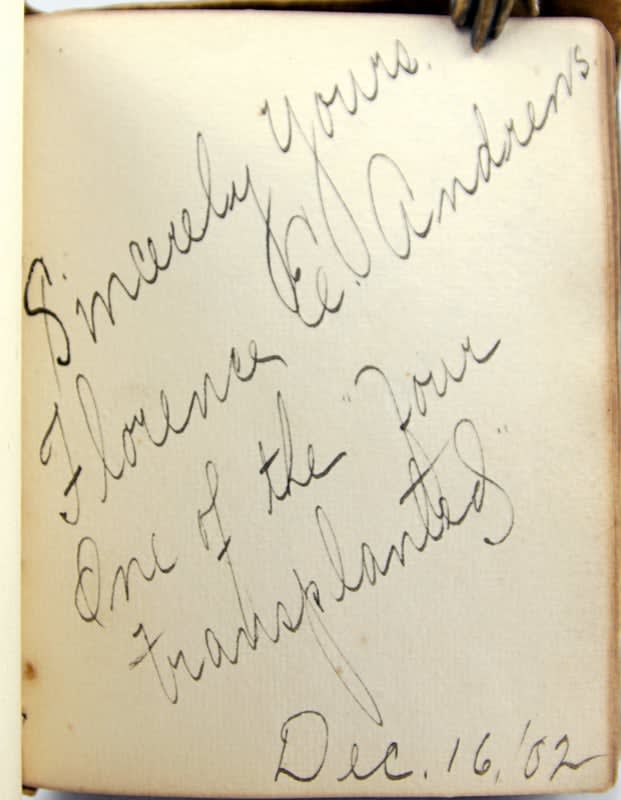 Sincerely Yours.
Florence E. Andrews.
One of the "Four
transplanted"
Dec. 16, '02